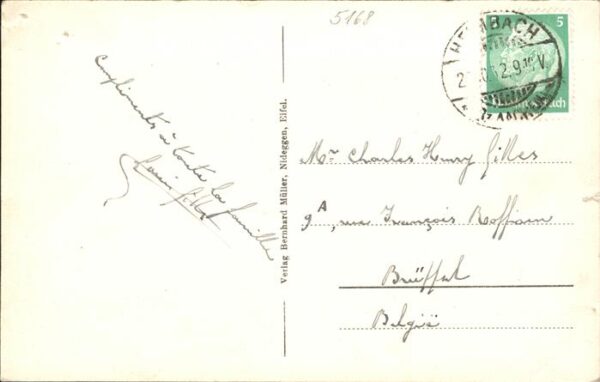 5168
HEIMBACH
5
Compliments à toute la famille
Verlag Bernhard Müller, Nideggen, Eifel.
Mr Charles Henry Gilles
9A, rue François Roffiaen
Brüssel
België